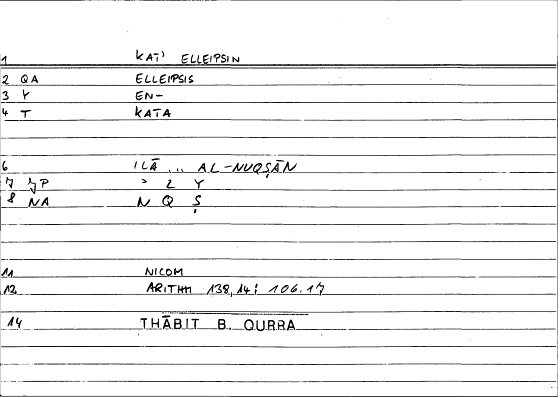 1 KAT' ELLEIPSIN
2 QA ELLEIPSIS
3 Y EN-
4 T KATA
6 ILĀ ... AL-NUQṢĀN
7 JP ʾ L Y
8 NA N Q Ṣ
11 NICOM
12 ARITHM 138,14; 106.17
14 THĀBIT B. QURRA